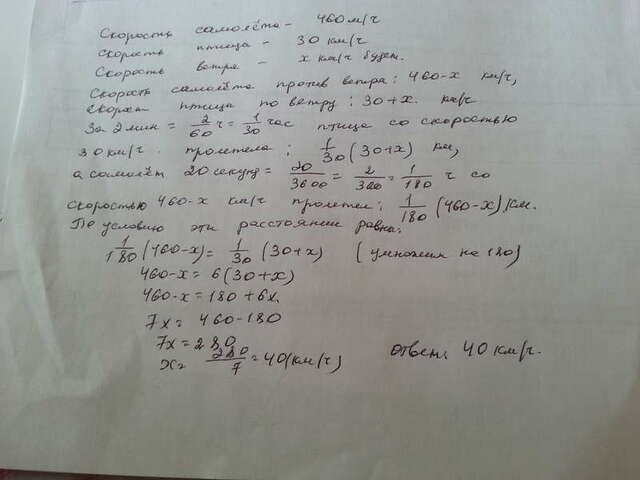 Скорость самолёта - 460 м/ч
скорость птица - 30 км/ч
Скорость ветра - x км/ч будет.
Скорость самолёта против ветра: 460-x км/ч,
скорост птица по ветру: 30+x. км/ч
За 2 мин = 2/60 ч = 1/30 час птица со скоростью
30 км/ч. пролетела; 1/30 (30+x) км,
а самолёт 20 секунд = 20/3600 = 2/360 = 1/180 ч со
скоростью 460-x км/ч пролетел; 1/180 (460-x) км.
По условию эти расстоянии равна.
1/180 (460-x) = 1/30 (30+x) (умножим на 180)
460-x = 6(30+x)
460-x = 180+6x.
7x = 460-180
7x = 280
x = 280/7 = 40(км/ч) ответ: 40 км/ч.